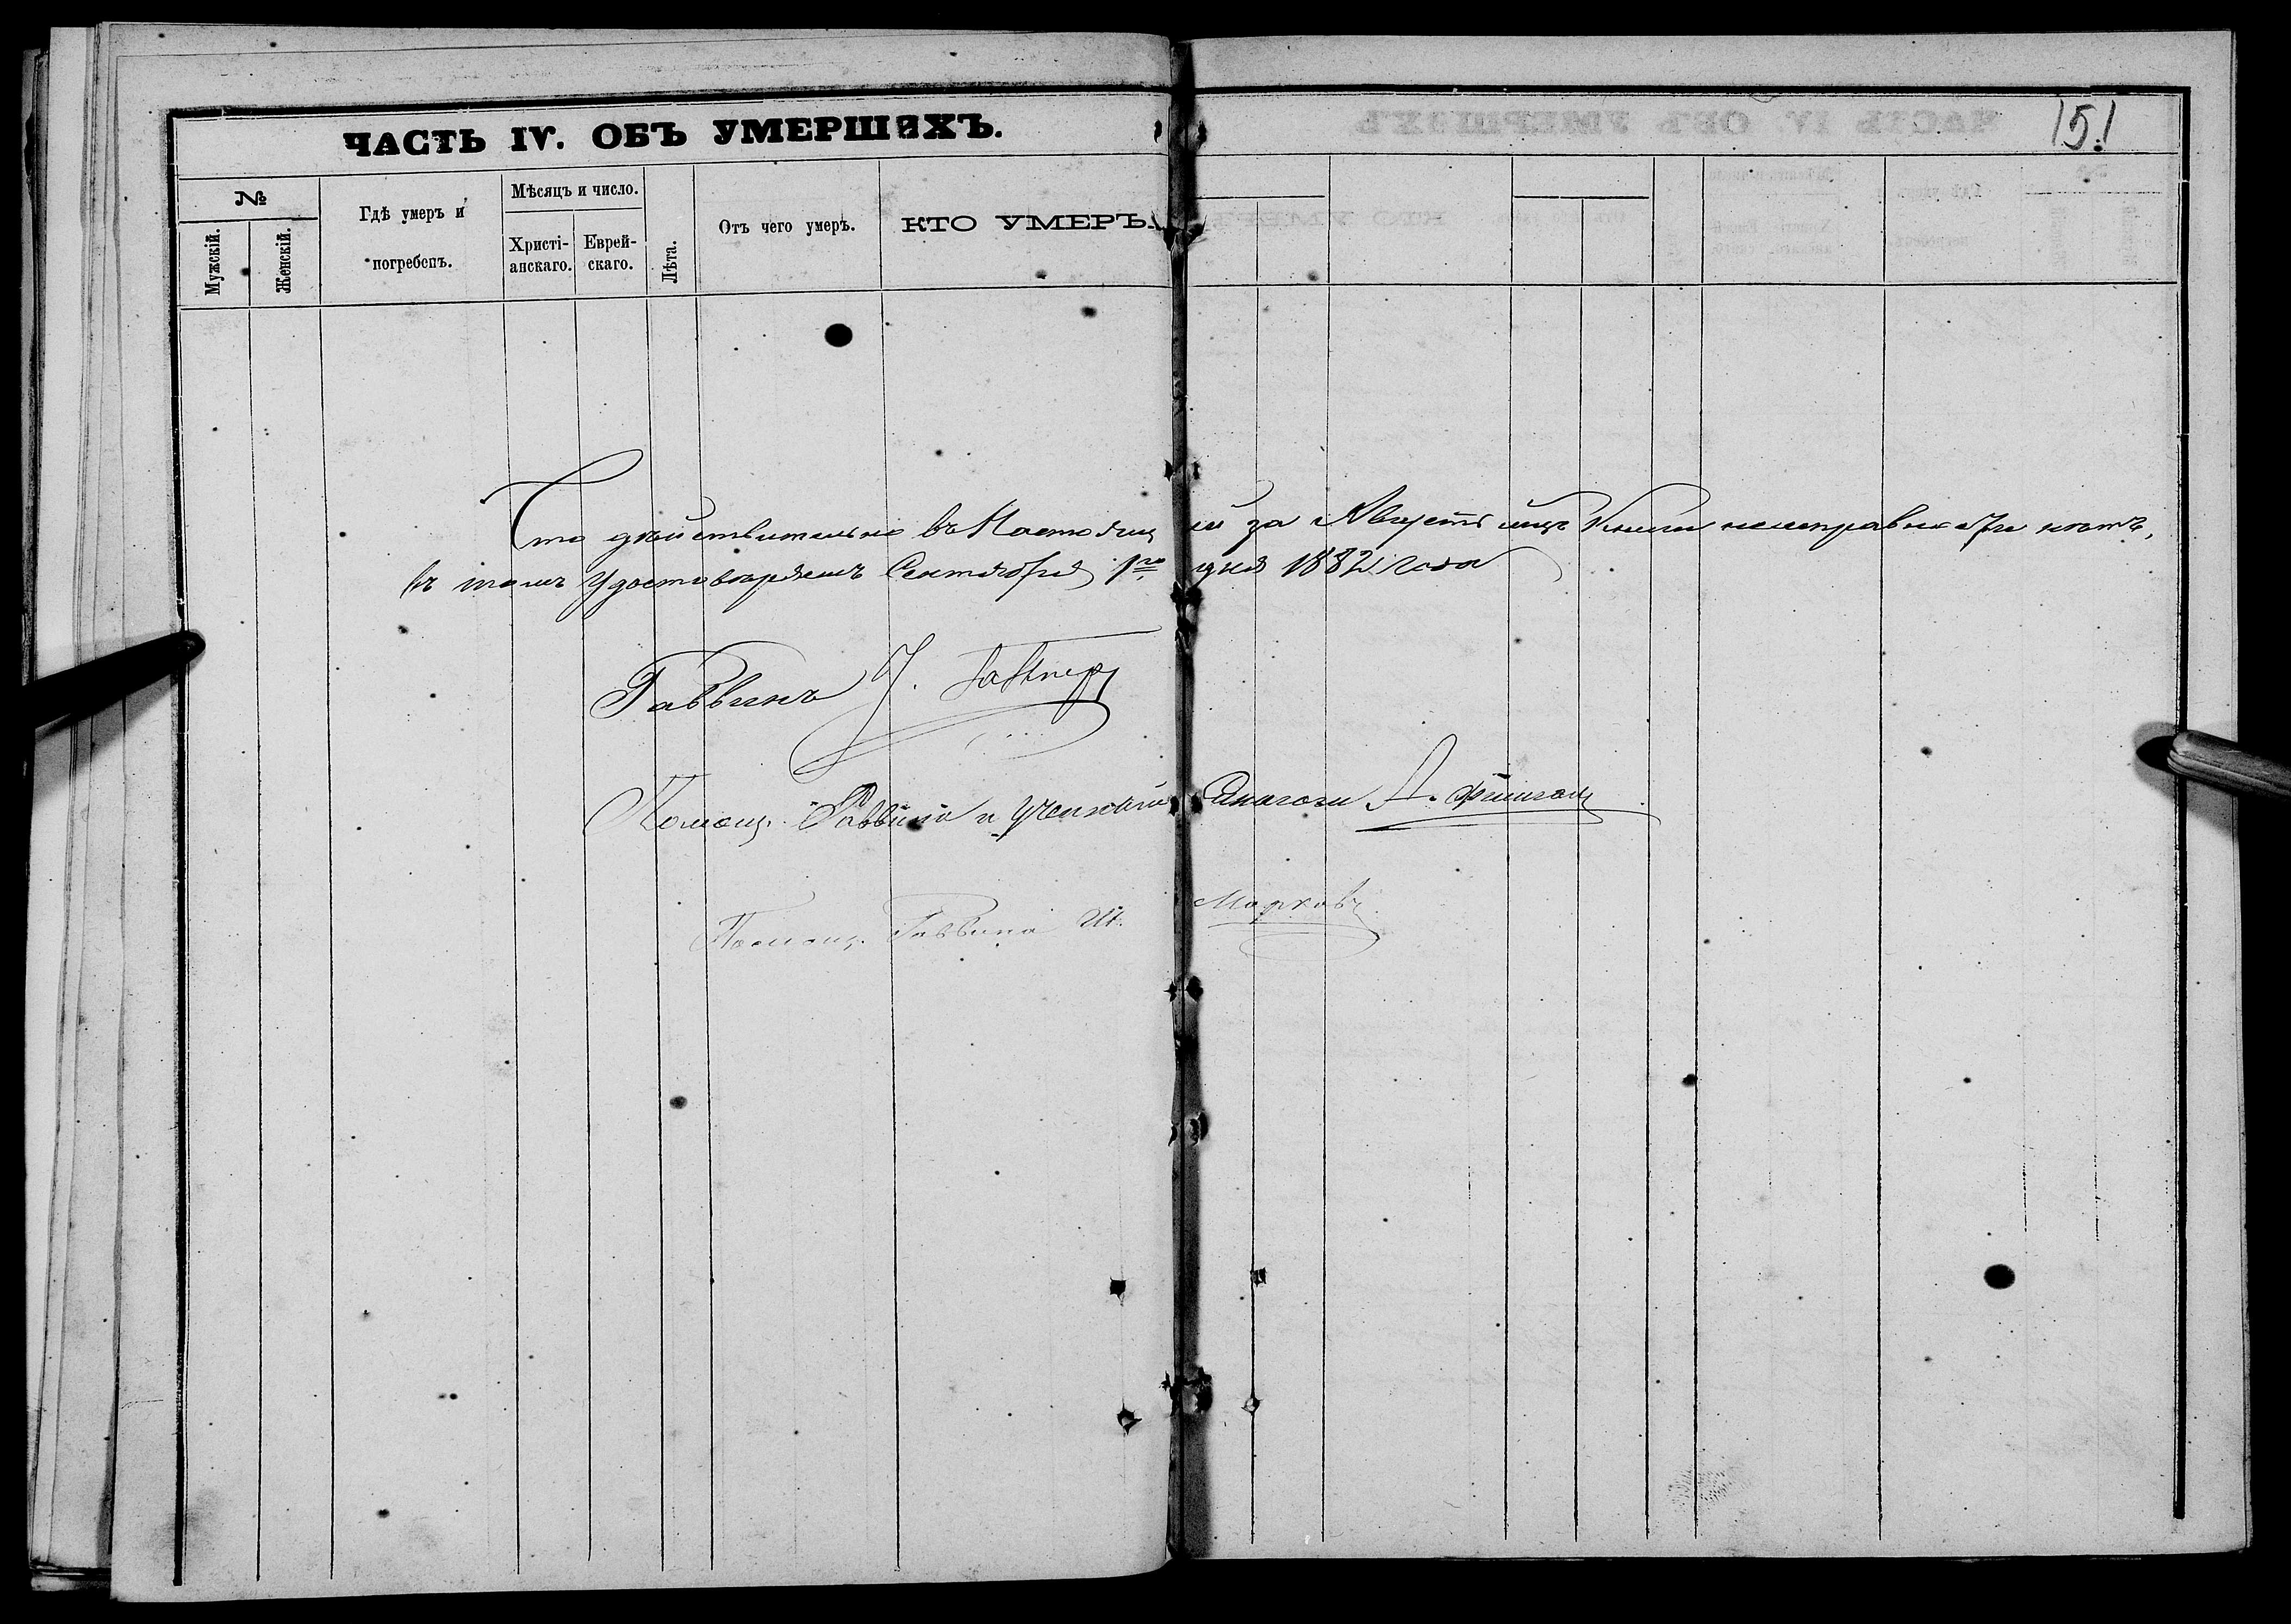 ЧАСТЬ IV. ОБЪ УМЕРШИХЪ.
151
№
Мужскій.
Женскій.
Гдѣ умеръ и
погребенъ.
Мѣсяцъ и число.
Христі-
анскаго.
Еврей-
скаго.
Лѣта.
Отъ чего умеръ.
КТО УМЕРЪ.
Что дѣйствительно въ Настоящей за Августъ мѣсяцъ Книги неисправностей нѣтъ,
въ томъ удостовѣряемъ Сентября 1го дня 1882 года
Раввинъ
Помощ. Раввина и Ученый Синагоги А.
Помощ. Раввина М. Марковъ